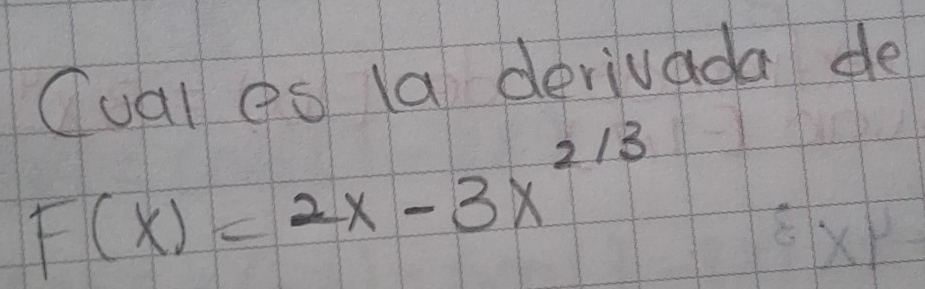 Cual es la derivada de
F(x) = 2x - 3x^2/3